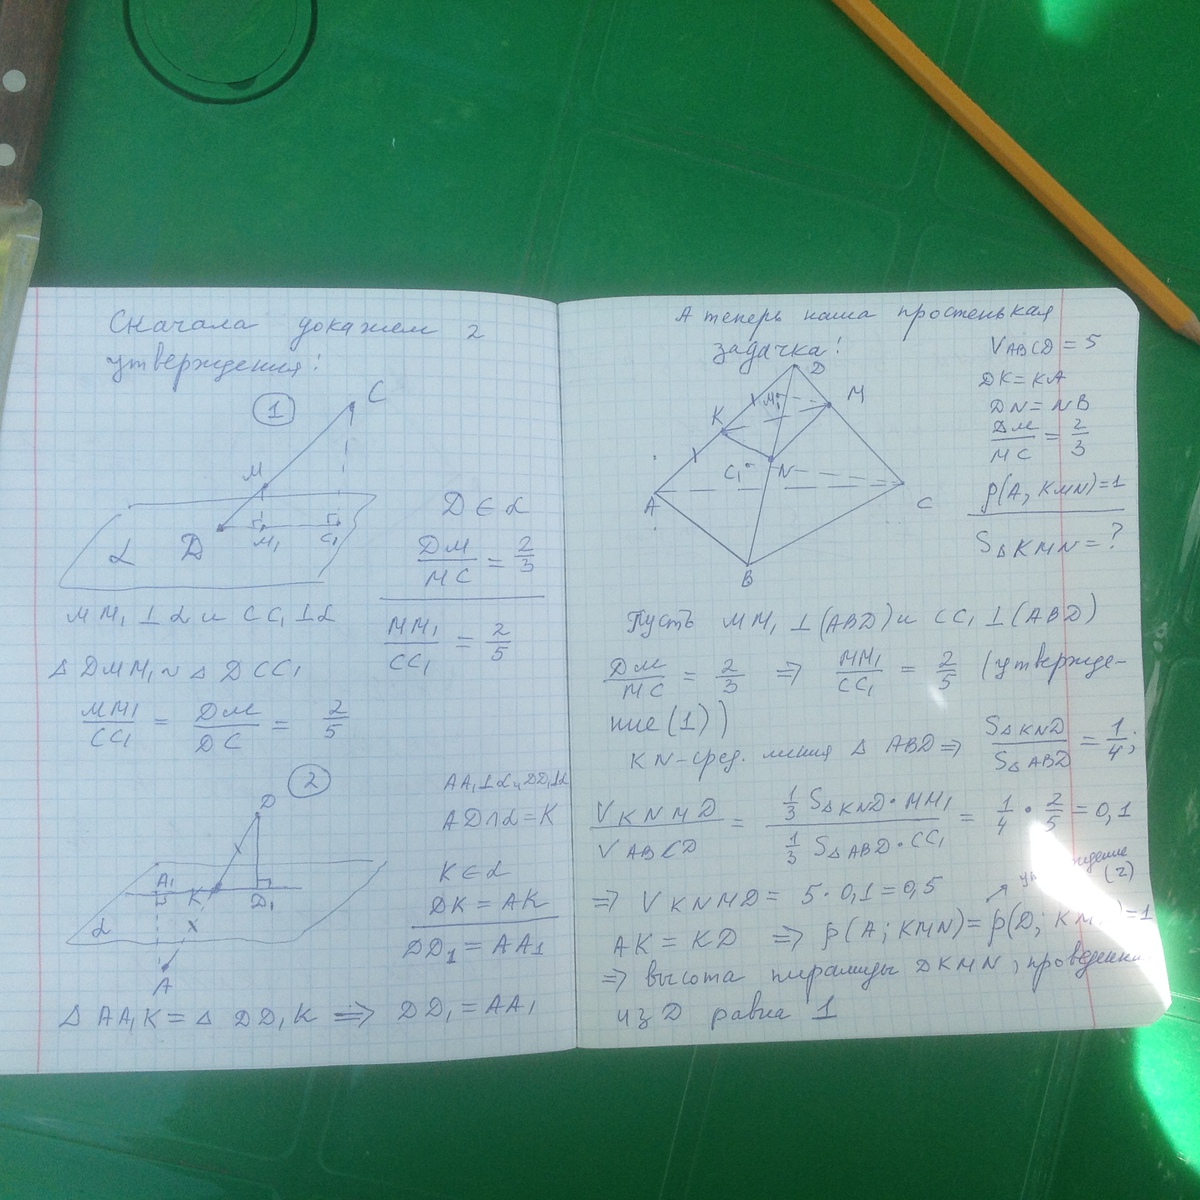 Сначала докажем 2
утверждения!
1
C
M
D
M₁
C₁
α
D ∈ α
DM/MC = 2/3
MM₁/CC₁ = 2/5
MM₁ ⊥ α и CC₁ ⊥ α
△ DMM₁ ~ △ DCC₁
MM₁/CC₁ = DM/DC = 2/5
2
D
A₁
K
D₁
α
A
AA₁ ⊥ α и DD₁ ⊥ α
AD ∩ α = K
K ∈ α
DK = AK
DD₁ = AA₁
△ AA₁K = △ DD₁K ⟹ DD₁ = AA₁
А теперь наша простенькая
задачка!
D
M
K
M₁
C₁
N
A
C
B
V ABCD = 5
DK = KA
DN = NB
DM/MC = 2/3
ρ(A, KMN) = 1
S△KMN = ?
Пусть MM₁ ⊥ (ABD) и CC₁ ⊥ (ABD)
DM/MC = 2/3 ⟹ MM₁/CC₁ = 2/5 (утвержде-
ние (1))
KN - сред. линия △ ABD ⟹ S△KND/S△ABD = 1/4;
V KNMD/V ABCD = 1/3 S△KND · MM₁/1/3 S△ABD · CC₁ = 1/4 · 2/5 = 0,1
⟹ V KNMD = 5 · 0,1 = 0,5
(2)
AK = KD ⟹ ρ(A; KMN) = ρ(D; KM = 1
⟹ высота пирамиды DKMN, проведенн
из D равна 1